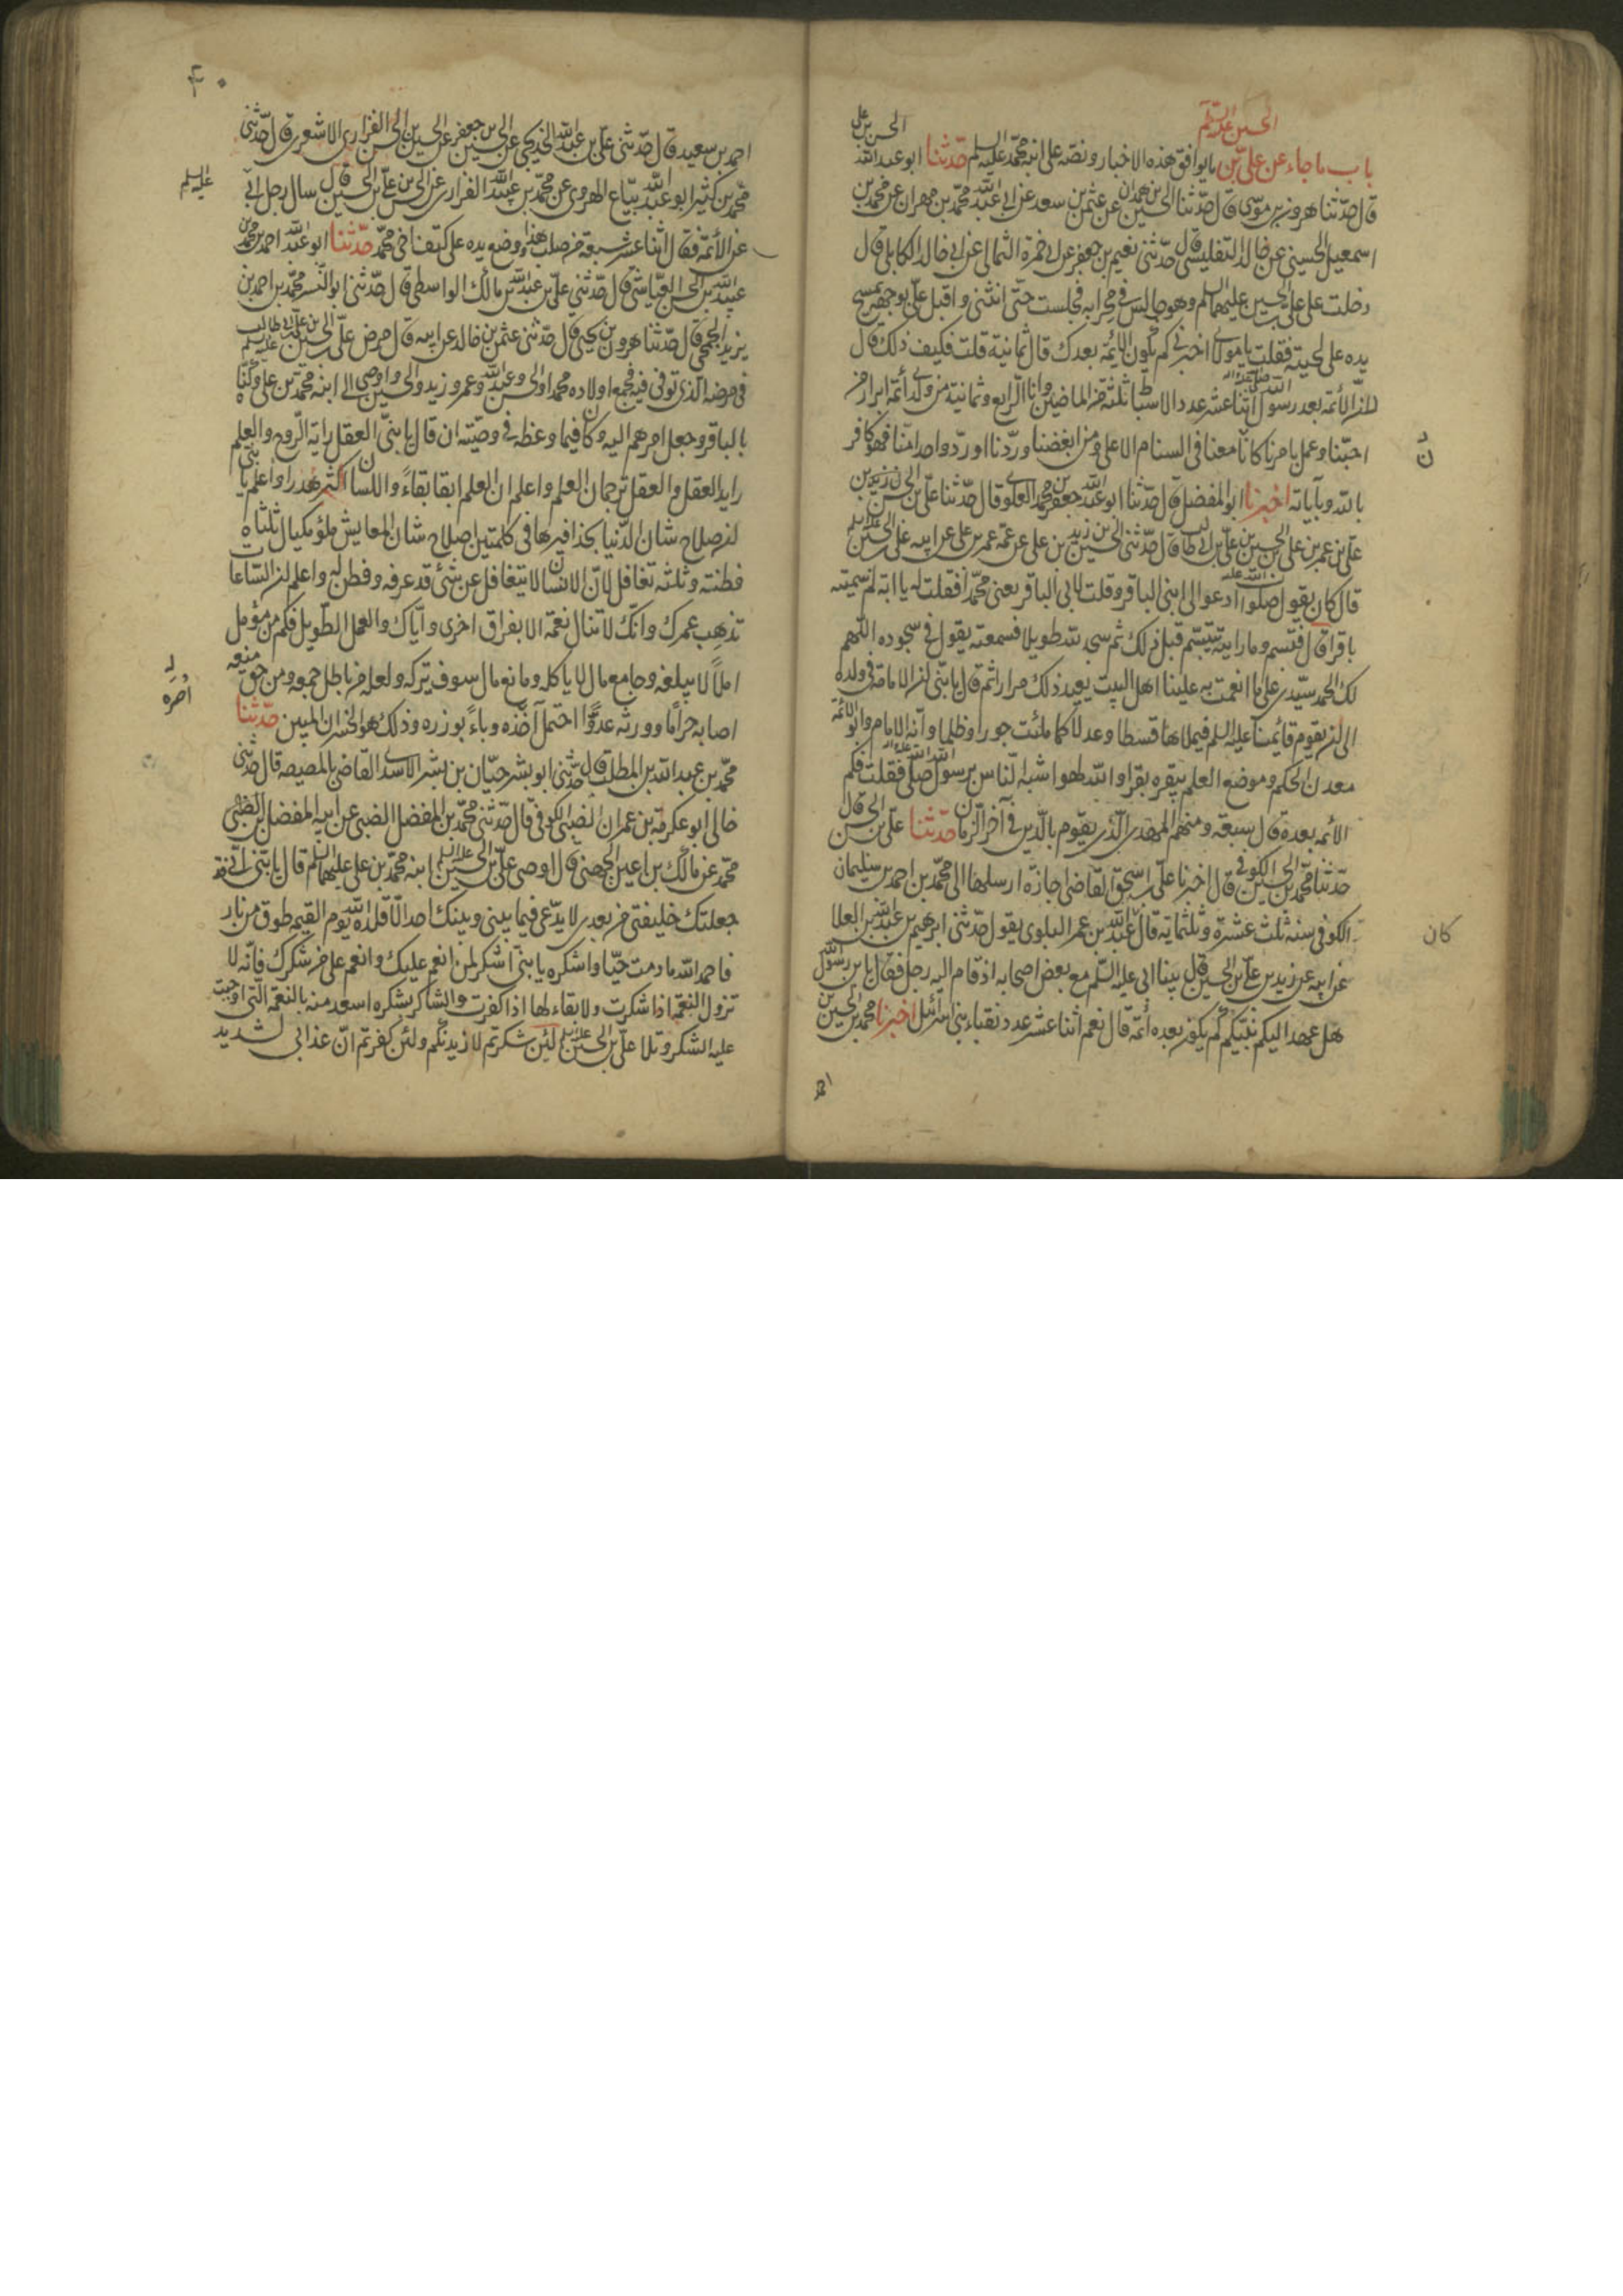 باب ما جاء عن علي بن الحسين عليه السلام ما يوافق هذه الاخبار ونصه على ابنه محمد عليه السلم حدثنا ابو عبد الله الحسين بن علي
قال حدثنا هرون بن موسى قال حدثنا الحسين بن همدان عن عثمن بن سعد عن ابي عبد الله محمد بن مهران عن محمد بن
اسمعيل الحسيني عن خالد التفليسي قال حدثني نعيم بن جعفر عن ابي حمزة الثمالي عن ابي خالد الكابلي قال
دخلت على علي بن الحسين عليهما السلم وهو جالس في محرابه فجلست حتى انثنى واقبل علي بوجهه يمسح
يده على لحيته فقلت يا مولاي اخبرني كم تكون الائمة بعدك قال ثمانية قلت فكيف ذلك قال
لان الأئمة بعد رسول الله صلى الله عليه واله اثنا عشر عدد الاسباط ثلثة من الماضين وانا الرابع وثمانية من ولدي أئمة ابرار من
احبنا وعمل بامرنا كان معنا في السنام الاعلى ومن ابغضنا وردنا او رد واحدا منا فهو كافر
بالله وبآياته اخبرنا ابو المفضل قال حدثنا ابو عبد الله جعفر بن محمد العلوي قال حدثنا علي بن الحسن بن زيد بن
علي بن عمر بن علي بن الحسين بن علي بن ابي طالب قال حدثني الحسين بن زيد بن علي عن عمه عمر بن علي عن ابيه علي بن الحسين عليه السلم
قال كان يقول صلوات الله عليه ادعوا الى ابني الباقر وقلت لابني الباقر يعني محمدا فقلت له يا ابه لم سميته
باقرا قال فتبسم وما رايته يتبسم قبل ذلك ثم سجد لله طويلا فسمعته يقول في سجوده اللهم
لك الحمد سيدي على ما انعمت به علينا اهل البيت يعيد ذلك مرارا ثم قال يا بني ان الامامة في ولده
الى ان يقوم قائمنا عليه السلم فيملاها قسطا وعدلا كما ملئت جورا وظلما وانه الامام وابو الائمة
معدن الحكم وموضع العلم يبقره بقرا والله لهو اشبه الناس برسول الله صلى الله عليه واله فقلت فكم
الائمة بعده قال سبعة ومنهم المهدي الذي يقوم بالدين في آخر الزمان حدثنا علي بن الحسن قال
حدثنا محمد بن الحسين الكوفي قال اخبرنا علي بن اسحق القاضي اجازة ارسلها الى محمد بن احمد بن سليمان
الكوفي سنه ثلث عشرة وثلثمائة قال عبد الله بن عمر البلوي يقول حدثني ابرهيم بن عبد الله بن العلا
عن ابيه عن زيد بن علي بن الحسين قال بينا ابي عليه السلم مع بعض اصحابه اذ قام اليه رجل فقال يا بن رسول الله
هل عهد اليكم نبيكم كم يكون بعده أئمة قال نعم اثنا عشر عدد نقباء بني اسرائيل اخبرنا محمد بن الحسين بن
ن
كان
۴۰
احمد بن سعيد قال حدثني علي بن عبد الله الخديجي عن الحسين بن جعفر عن الحسين بن الحسن الفزاري الاشعري قال حدثني
محمد بن كثير ابو عبد الله بياع الهروي عن محمد بن عبيد الله الفزاري عن الحسين بن علي بن الحسين قال سال رجل ابي
عليه السلم
عن الأئمة فقال اثنا عشر سبعة من صلب هذا ووضع يده على كتف اخي محمد حدثنا ابو عبد الله احمد بن محمد بن
عبيد الله بن الحسن العياشي قال حدثني علي بن عبد الله بن مالك الواسطي قال حدثني ابو النسر محمد بن احمد بن
يزيد الجمحي قال حدثنا هرون بن يحيى قال حدثني عثمن بن خالد عن ابيه قال مرض علي بن الحسين بن علي بن ابي طالب عليه السلم
في مرضه الذي توفي فيه فجمع اولاده محمدا والحسن وعبد الله وعمر وزيد والحسين واوصى الى ابنه محمد بن علي وكناه
بالباقر وجعل امرهم اليه وكان فيما وعظه في وصيته ان قال يا بني العقل راية الروح والعلم
رايد العقل والعقل ترجمان العلم واعلم ان العلم ابقا بقاءً واللسان اكثر هدرا واعلم يا بني
ان صلاح شان الدنيا بحذافيرها في كلمتين اصلاح شان المعايش ملؤ مكيال ثلثاه
فطنة وثلثه تغافل لان الانسان لا يتغافل عن شئ قد عرفه وفطن له واعلم ان الساعات
تذهب عمرك وانك لا تنال نعمة الا بفراق اخرى واياك والعمل الطويل فكم من مؤمل
املاً لا يبلغه وجامع مال لا ياكله ومانع مال سوف يتركه ولعله من باطل جمعه ومن حق منعه
اصابه حراما وورثه عدوا احتمل اصره وباءً بوزره وذلك هو الخسران المبين حدثنا
اصره
محمد بن عبد الله بن المطلب قال حدثني ابو بشر حيان بن بشر الاسدي القاضي بالمصيصة قال حدثني
خالي ابو عكرمة بن عمران الضبي الكوفي قال حدثني محمد بن المفضل الضبي عن ابيه المفضل بن الضبي
محمد عن مالك بن اعين الجهني قال اوصى علي بن الحسين عليه السلم ابنه محمد بن علي عليهما السلم قال يا بني اني قد
جعلتك خليفتي من بعدي لا يدعي فيما بيني وبينك احد الا قلده الله يوم القيمة طوق من نار
فاحمد الله ما دمت حيا واشكره يا بني اشكر لمن انعم عليك وانعم على من شكرك فانه لا
تزول النعمة اذا شكرت ولا بقاء لها اذا كفرت والشاكر بشكره اسعد منه بالنعمة التي اوجبت
عليه الشكر وتلا علي بن الحسين عليه السلم لئن شكرتم لازيدنكم ولئن كفرتم ان عذابي لشديد